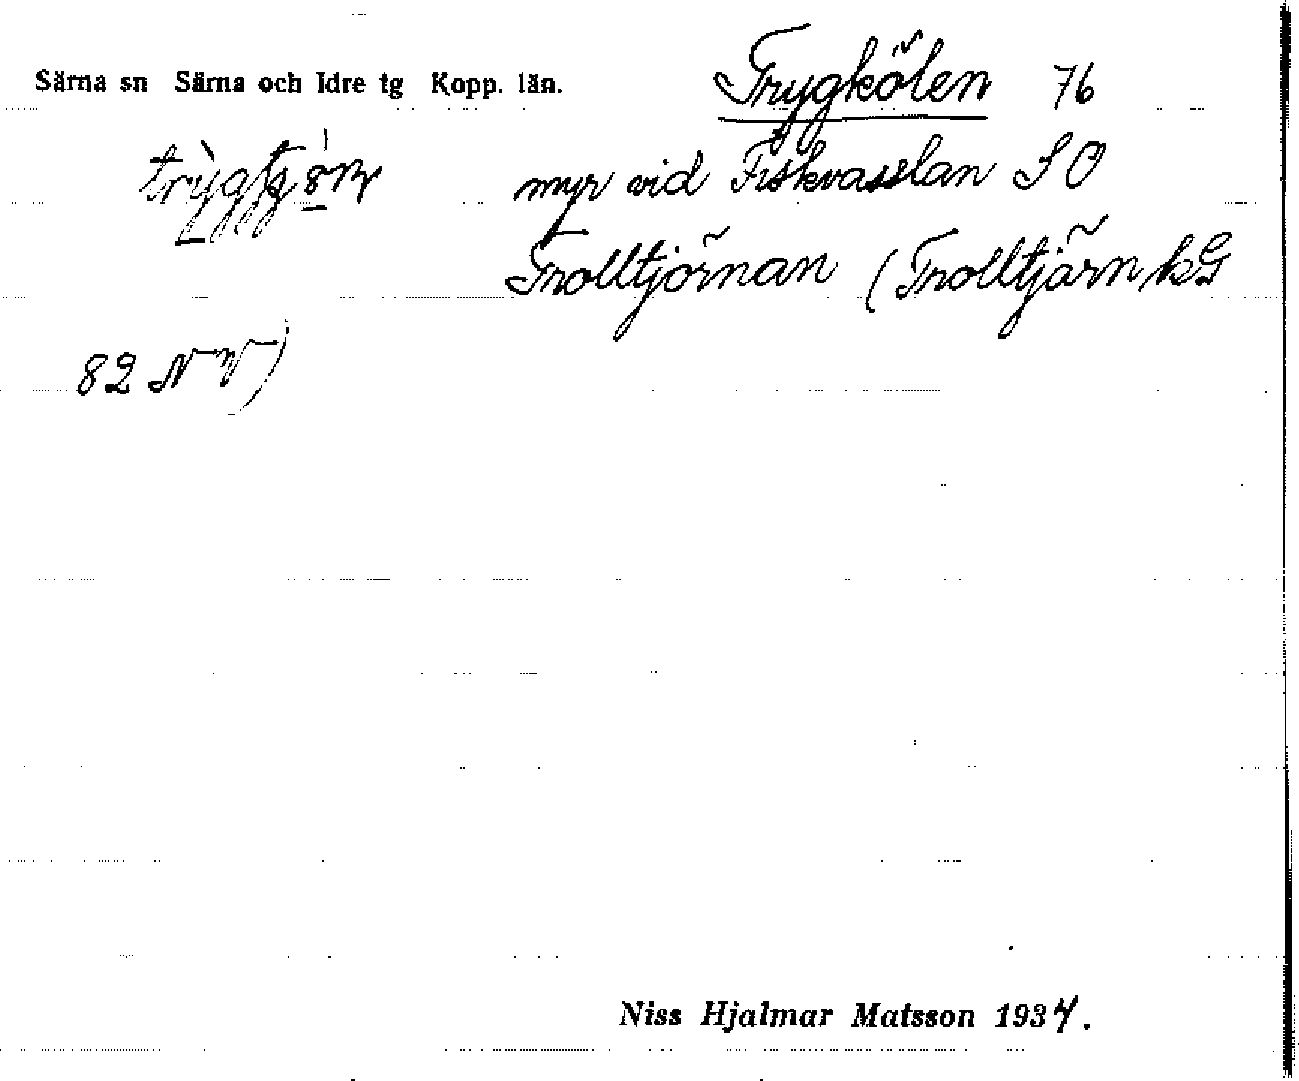 Särna sn Särna och Idre tg Kopp. län. Trygkölen 76
myr vid Fiskvasslan SO
Trolltjörnan (Trolltjärn kG
82 NV)
Niss Hjalmar Matsson 1934.